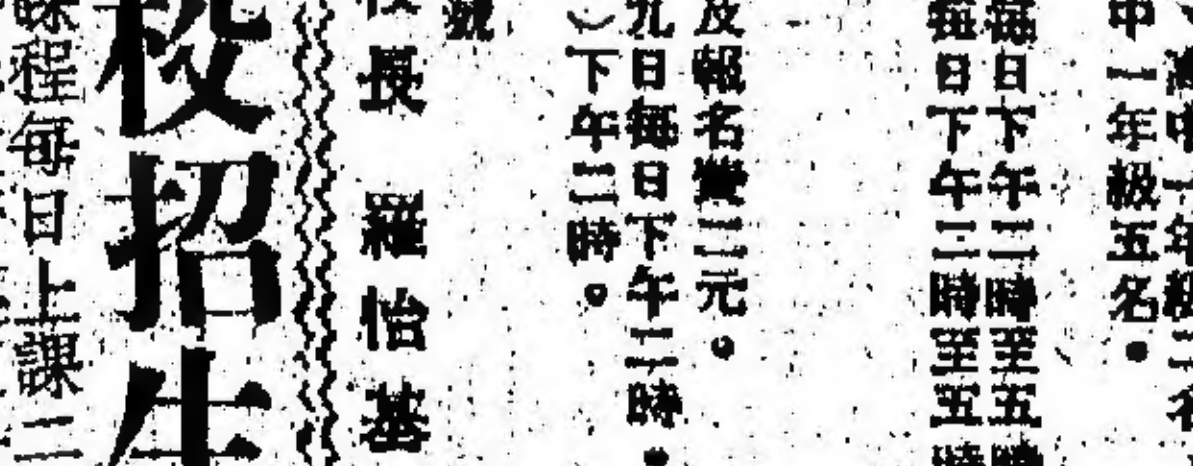 高中一年級二名
中一年級五名。
每日下午二時至五時
每日下午二時至五時
及報名費二元。
九日每日下午二時。
)下午二時。
號
校長 羅怡基
校招生
課程每日上課二